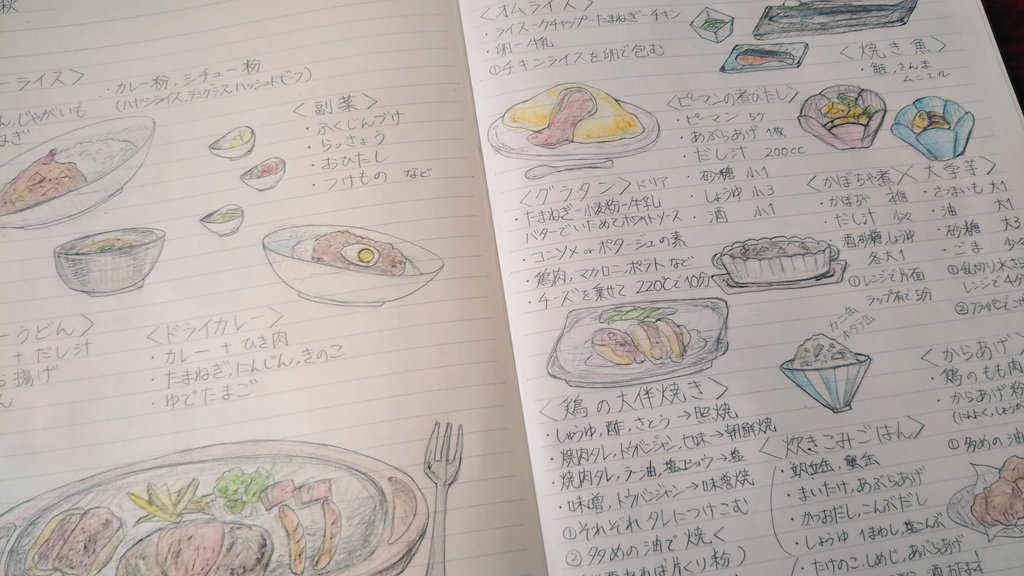 ーライス〉
・カレー粉、シチュー粉
(ハヤシライス、デミグラス、ハッシュドビーフ)
ん、じゃがいも
ねぎ
〈副菜〉
・ふくじんづけ
・らっきょう
・おひたし
・つけもの など
ーうどん〉
+ だし汁
揚げ
ん
〈ドライカレー〉
・カレー + ひき肉
・たまねぎ、にんじん、きのこ
・ゆでたまご
〈オムライス〉
・ライスーケチャップーたまねぎーチキン
・卵ー牛乳
①チキンライスを卵で包む
〈焼き魚〉
・鮭、さんま
ムニエル
〈ピーマンの煮びたし〉
・ピーマン 5ケ
・あぶらあげ 1枚
・だし汁 200cc
・砂糖 小1
・しょうゆ 小3
・酒 小1
〈グラタン〉ドリア
・たまねぎー小麦粉ー牛乳
バターでいためてホワイトソース
・コンソメ or ポタージュの素
・鶏肉、マカロニ、ポテトなど
・チーズを乗せて 220℃で10分
〈かぼちゃ煮〉
・かぼちゃ
・だし汁 少々
・酒 砂糖 しょうゆ
各大1
①レンジで片面
ラップ有で5分
〈大学芋〉
・さつまいも 大1
・油 大1
・砂糖 大3
・ごま 少々
①乱切り水さ
レンジで4分
〈鶏の大伴焼き〉
・しょうゆ、酢、さとう→照焼
・焼肉タレ、トウバンジャン、七味→朝鮮焼
・焼肉タレ、ラー油、塩コショウ→塩
・味噌、トウバンジャン→味噌焼
①それぞれタレにつけこむ
②多めの油で焼く
あれば片くり粉)
カニ缶
ホタテ缶
〈炊きこみごはん〉
・蟹缶
・まいたけ、あぶらあげ
・かつおだし、こんぶだし
・しょうゆ 塩こんぶ
・たけのこ、しめじ、あぶらあげ
〈からあげ〉
・鶏のもも肉
・からあげ粉
①多めの油